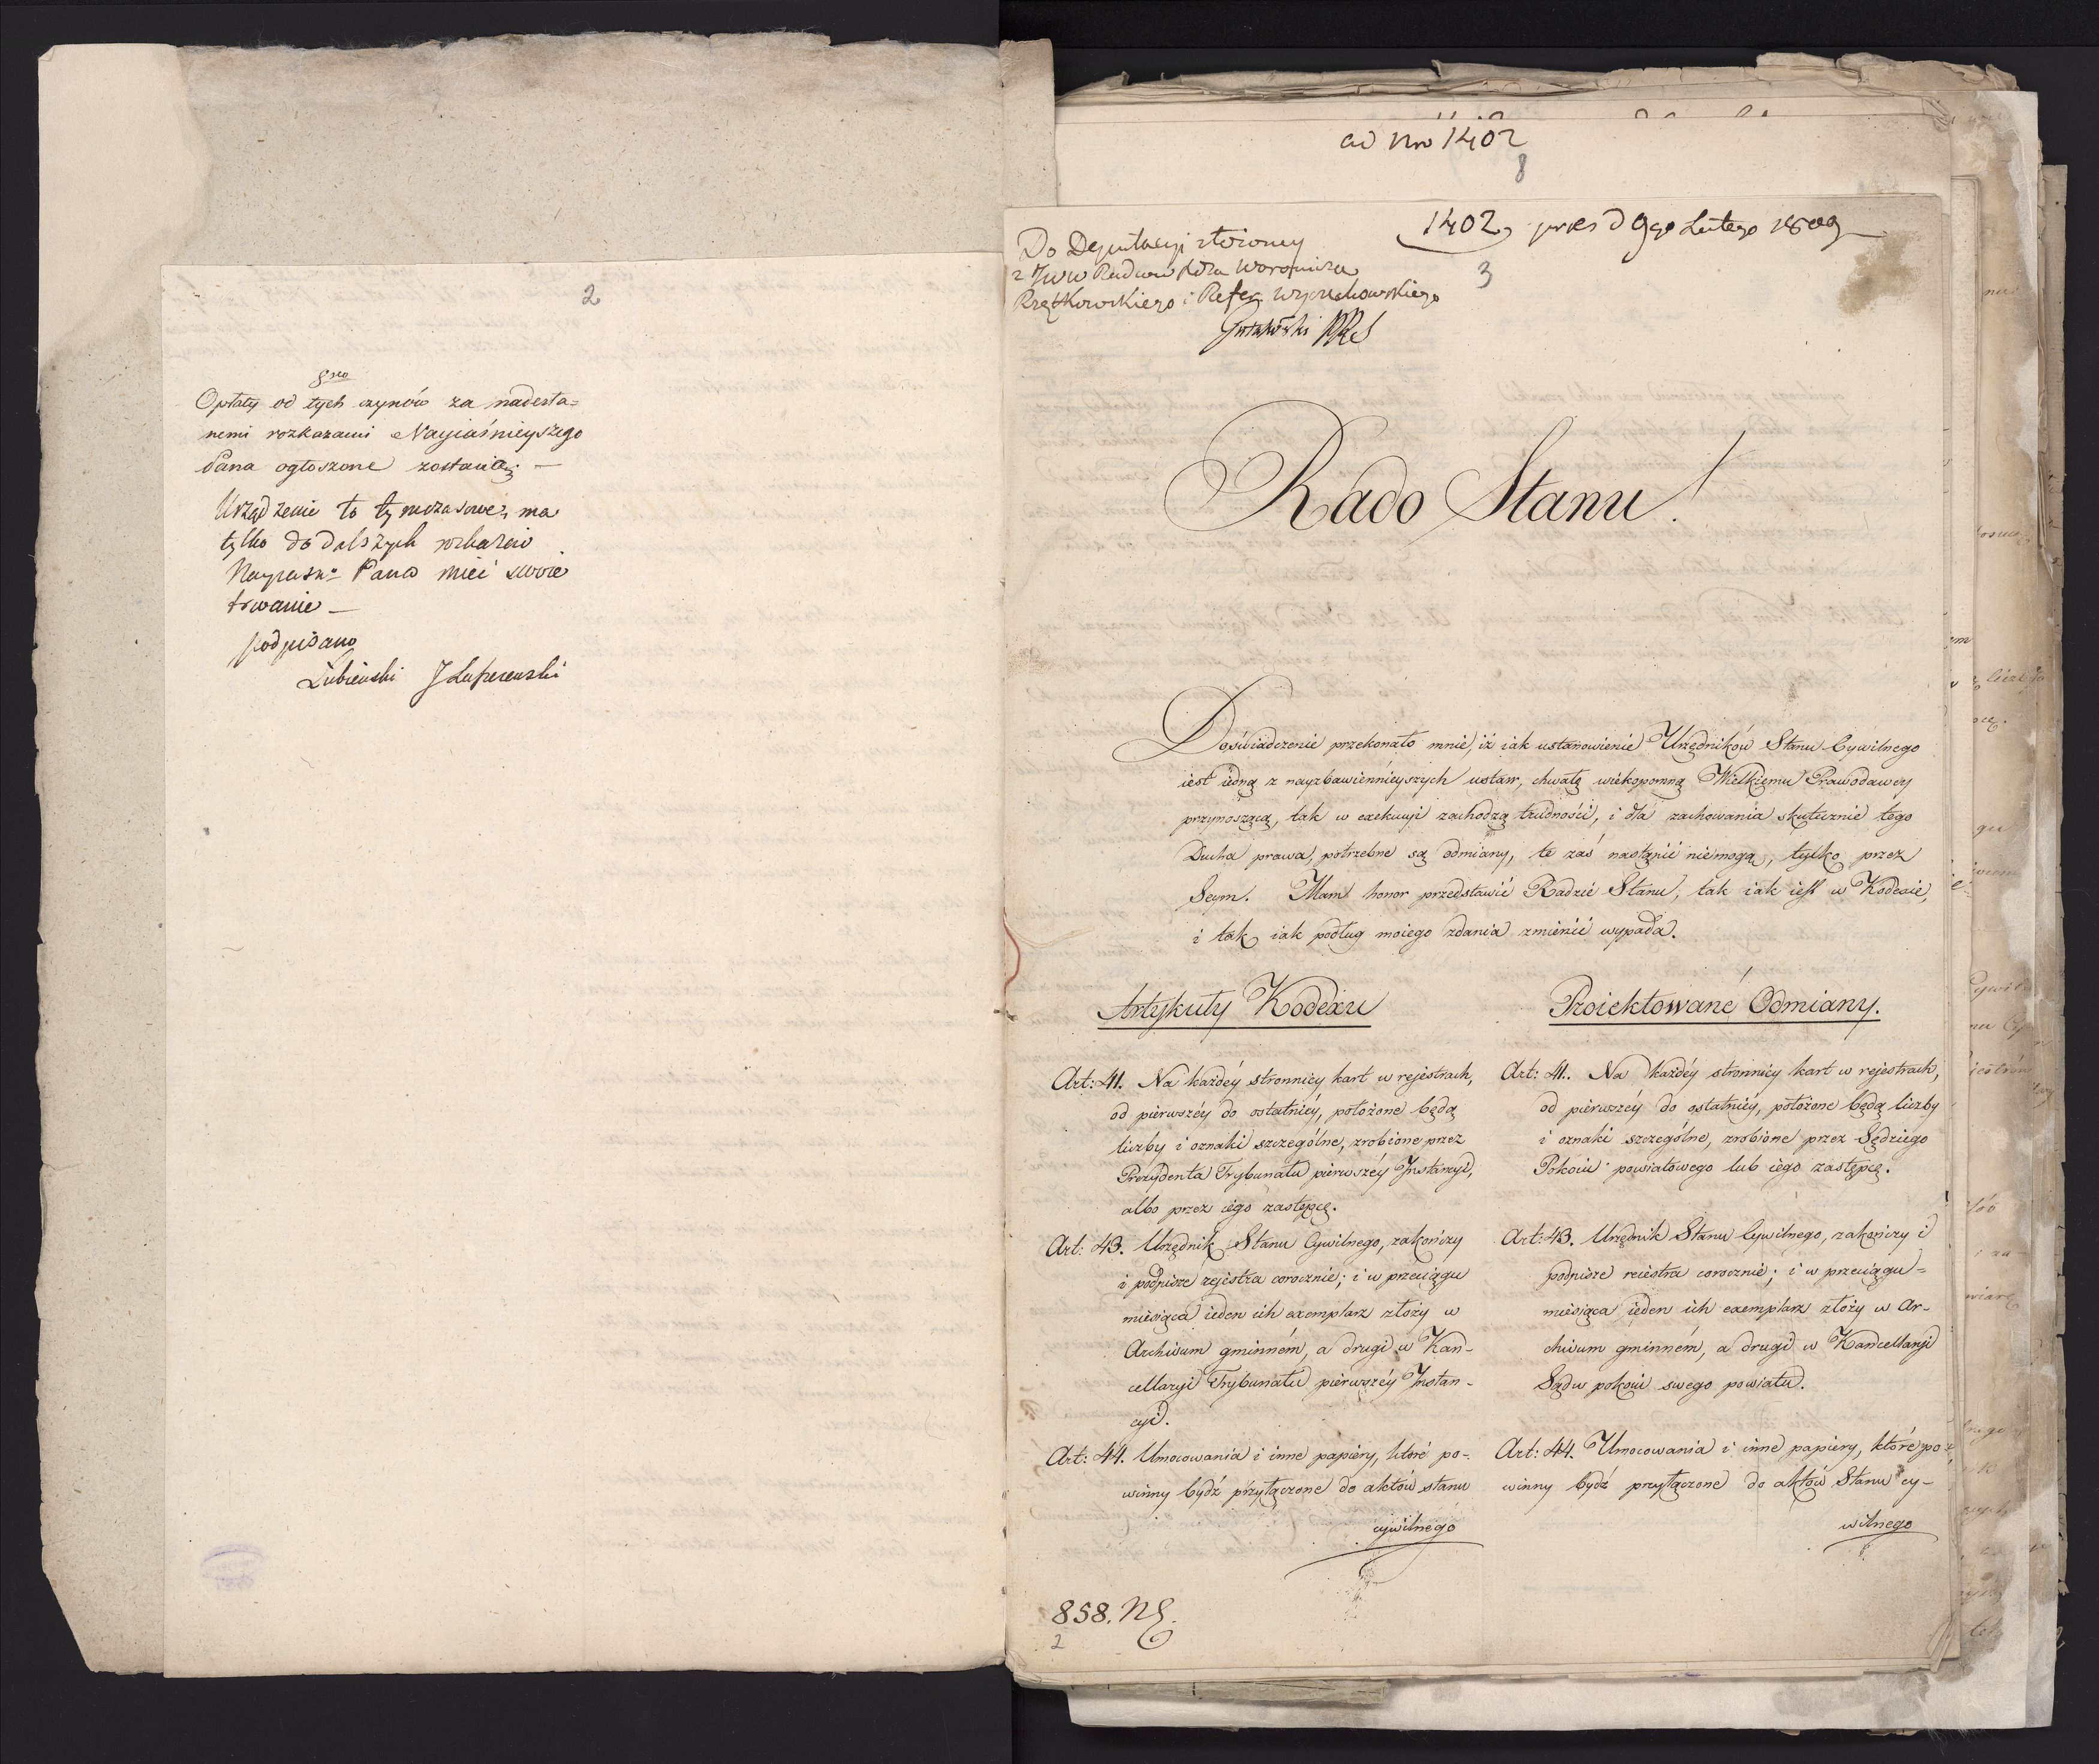 2
8vo
Opłaty od tych czynów za nadesła=
nemi rozkazami Nayiaśnieyszego
Pana ogłoszone zostaną. —
Urządzenie to tymczasowe, ma
tylko do dalszych rozkazów
Nayiaśn: Pana mieć swoie
trwanie —
podpisano
Łubieński J Łuszczewski
ad Nro 1402
8
1402 pres d 9go Lutego 1809
3
Do Deputacyi złożoney
z JWW Radców Xdza Woronicza
Rzętkowskiego i Refer. Wyczechowskiego
Gutakowski PRS
Rado Stanu!
Doświadczenie przekonało mnie, iż iak ustanowienie Urzędników Stanu Cywilnego
iest iedną z nayzbawiennieyszych ustaw, chwałę wiekopomną Wielkiemu Prawodawcy
przynoszącą, tak w exekucyi zachodzą trudności, i dla zachowania skutecznie tego
Ducha prawa, potrzebne są odmiany, te zaś nastąpić niemogą, tylko przez
Seym. Mam honor przedstawić Radzie Stanu, tak iak iest w Kodexie,
i tak, iak podług moiego zdania zmienić wypada.
Artykuły Kodexu
Art: 41. Na każdéy stronnicy kart w rejestrach,
od pierwszéy do ostatniéy, położone będą
liczby i oznaki szczególne, zrobione przez
Prezydenta Trybunału pierwszéy Instancyi,
albo przez iego zastępcę.
Art: 43. Urzędnik Stanu Cywilnego, zakończy
i podpisze rejestra corocznie; i w przeciągu
miesiąca ieden ich exemplarz złoży w
Archiwum gminném, a drugi w Kan-
cellaryi Trybunału pierwszéy Instan-
cyi.
Art: 44. Umocowania i inne papiery, które po-
winny bydź przyłączone do aktów stanu
cywilnego
Proiektowané Odmiany.
Art: 41. Na każdéy stronnicy kart w rejestrach,
od pierwszéy do ostatniéy, położone będą liczby
i oznaki szczególne, zrobione przez Sędziego
Pokoiu powiatowego lub iego zastępcę.
Art: 43. Urzędnik Stanu Cywilnego, zakończy i
podpisze reiestra corocznie; i w przeciągu=
miesiąca ieden ich exemplarz złoży w Ar-
chiwum gminném, a drugi w Kancellaryi
Sądu pokoiu swego powiatu.
Art: 44. Umocowania i inne papiery, które po-
winny bydź przyłączone do aktów Stanu cy-
wilnego
858. NE.
2